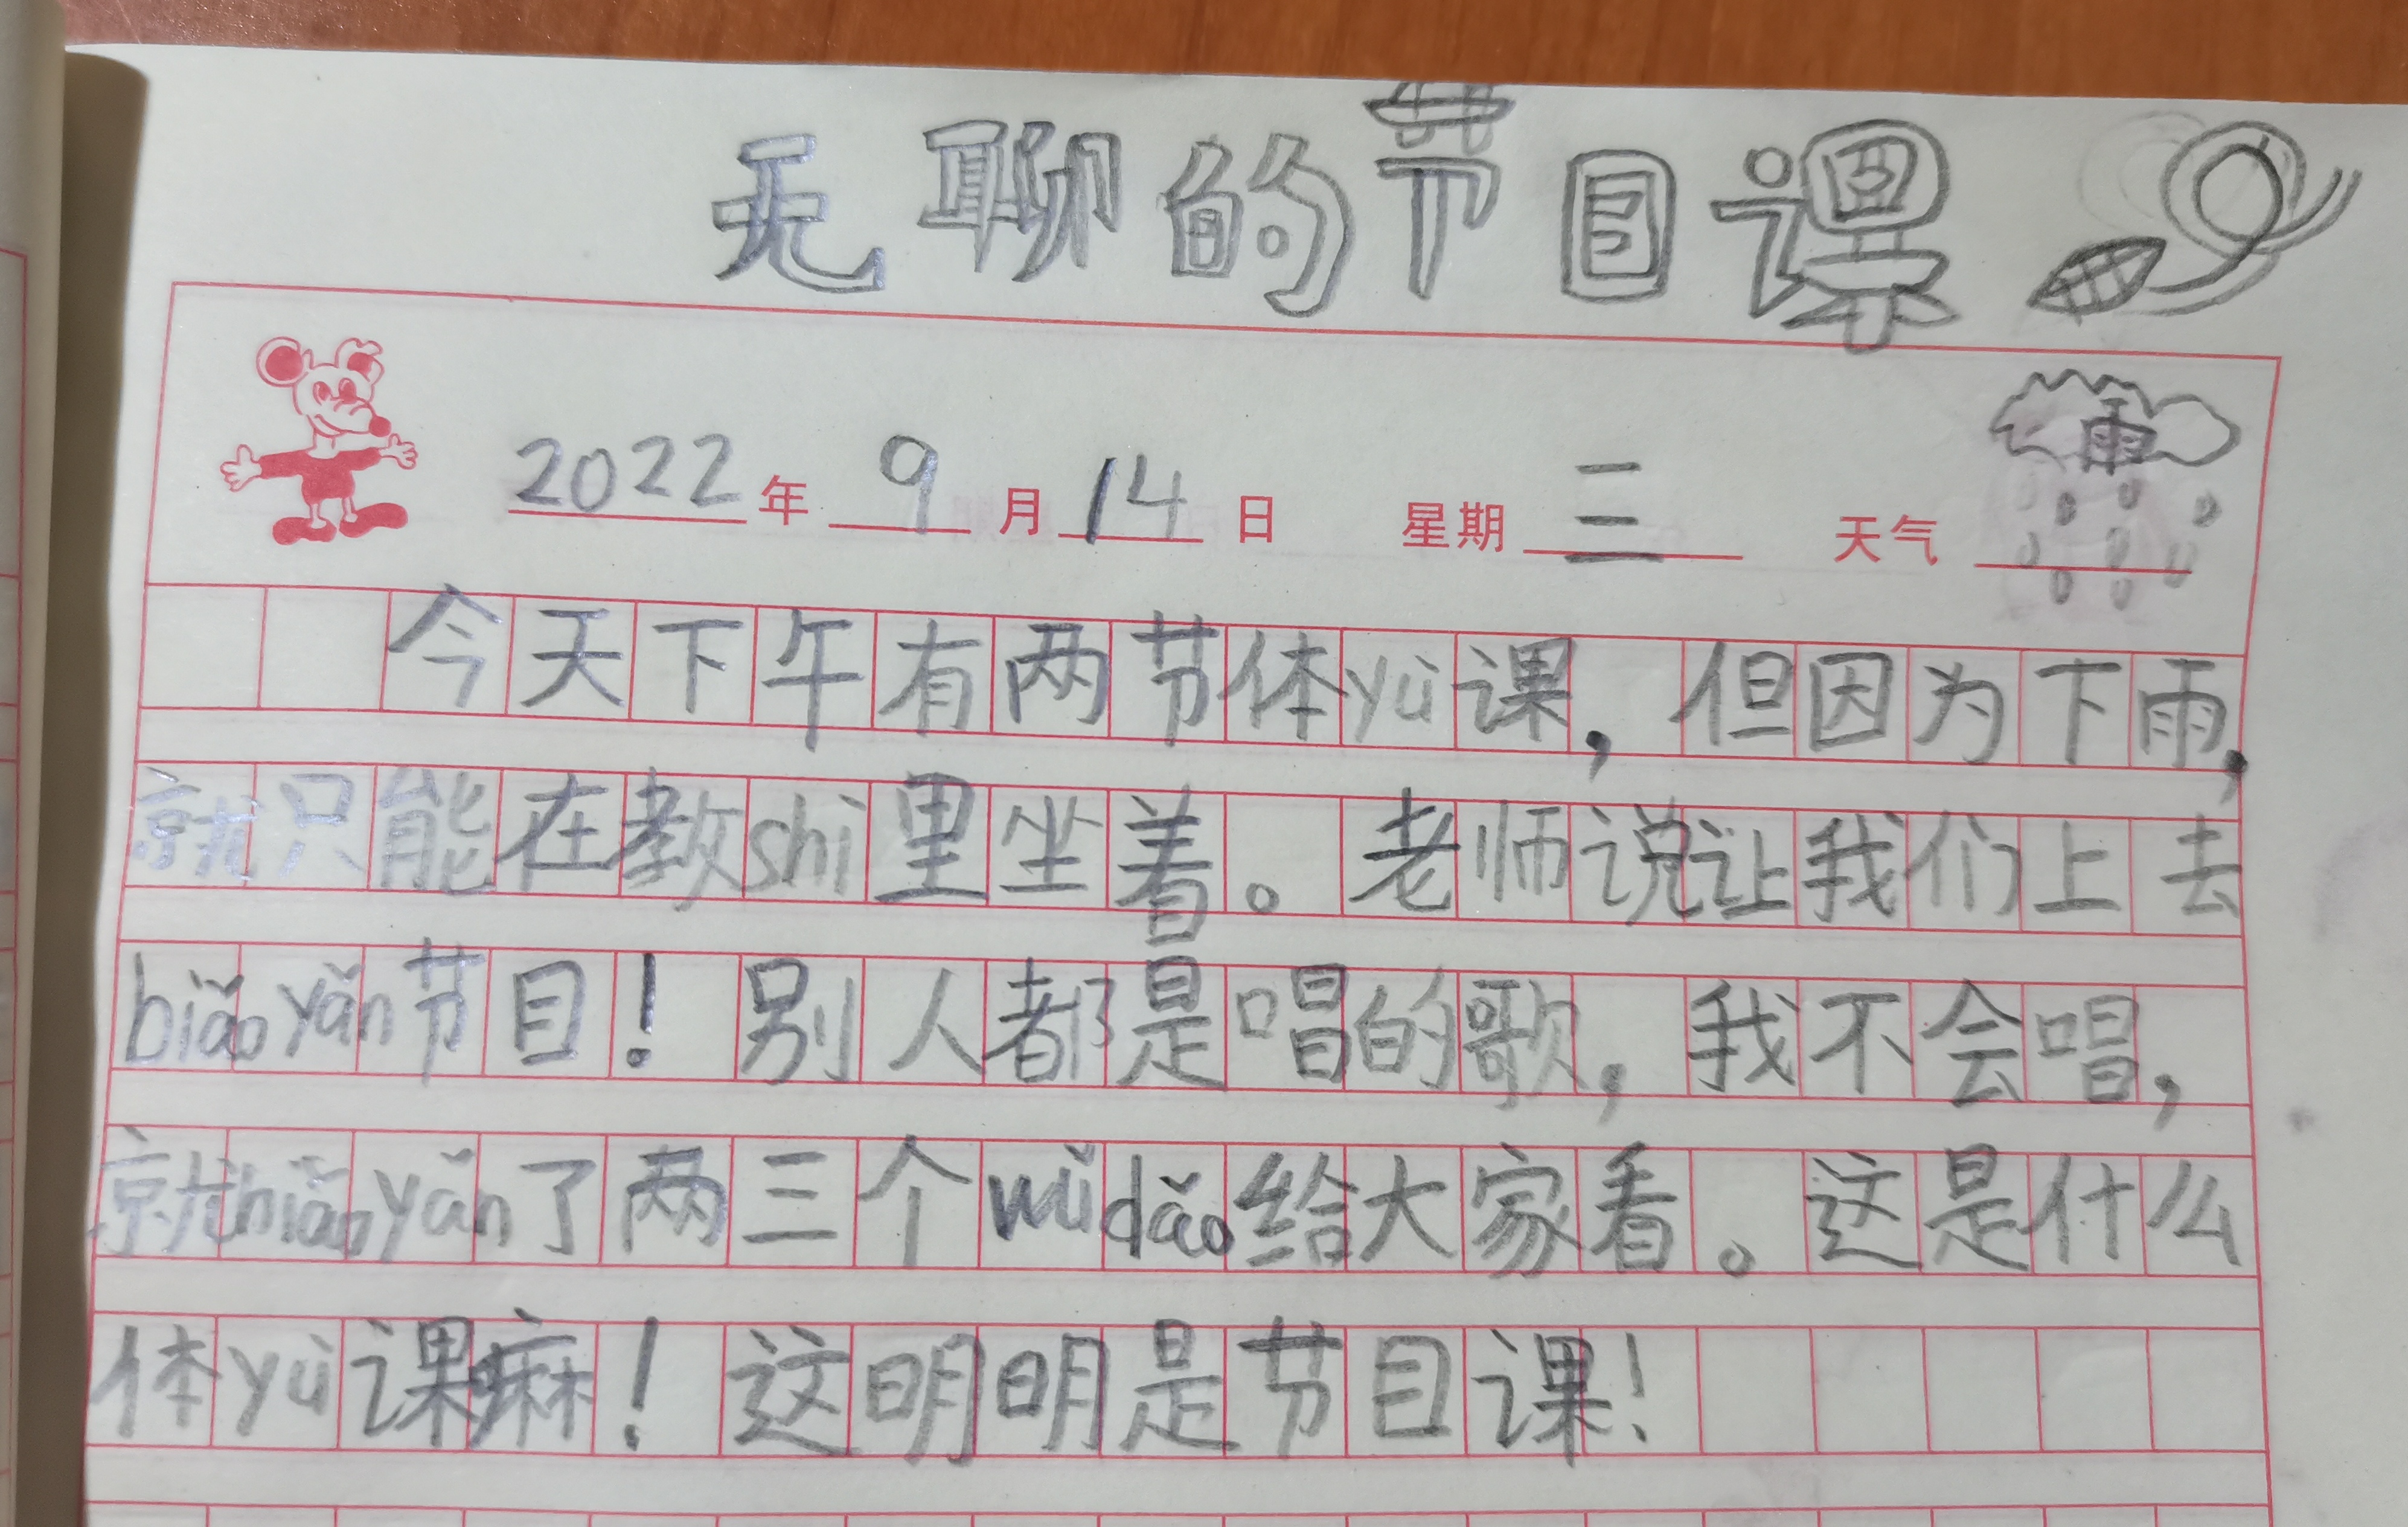 无聊的节目课
2022年9月14日 星期三 天气 雨
今天下午有两节体yù课，但因为下雨，
就只能在教shì里坐着。老师说让我们上去
biǎoyǎn节目！别人都是唱的歌，我不会唱，
就biǎoyǎn了两三个wǔdǎo给大家看。这是什么
体yù课嘛！这明明是节目课！